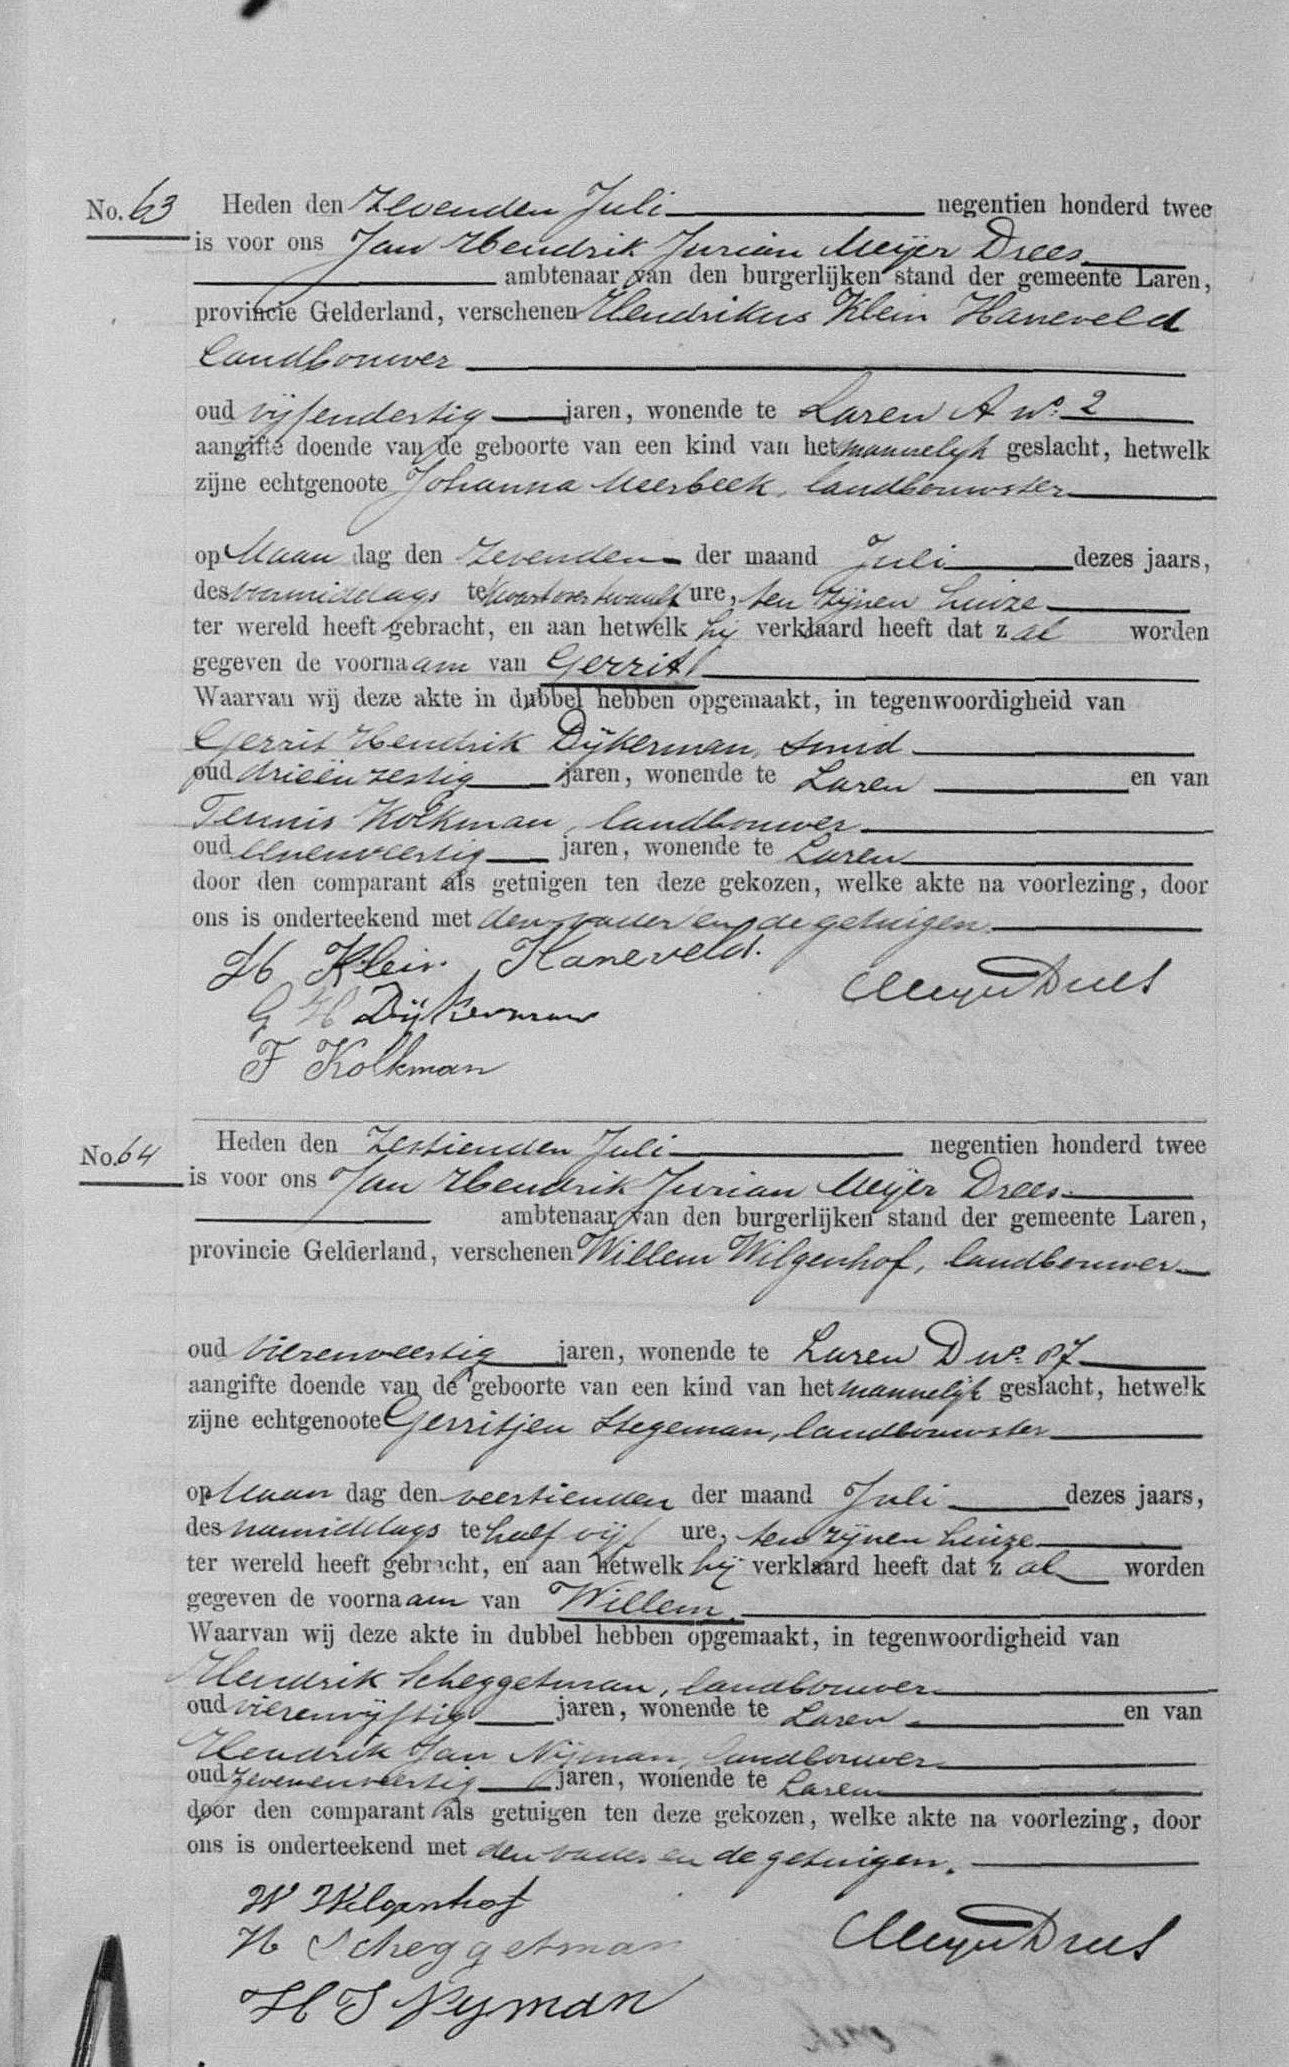 No. 63 Heden den zevenden Juli negentien honderd twee
is voor ons Jan Hendrik Jurian Meijer Drees
ambtenaar van den burgerlijken stand der gemeente Laren,
provincie Gelderland, verschenen Hendrikus Klein Haneveld
landbouwer
oud vijfendertig jaren, wonende te Laren A no. 2
aangifte doende van de geboorte van een kind van het mannelijk geslacht, hetwelk
zijne echtgenoote Johanna Meerbeek, landbouwster
op Maan dag den zevenden der maand Juli dezes jaars,
des voormiddags te kwart over twaalf ure, ten zijnen huize
ter wereld heeft gebracht, en aan hetwelk hij verklaard heeft dat zal worden
gegeven de voornaam van Gerrit
Waarvan wij deze akte in dubbel hebben opgemaakt, in tegenwoordigheid van
Gerrit Hendrik Dijkerman, smid
oud drieënzestig jaren, wonende te Laren en van
Teunis Kolkman, landbouwer
oud eenenveertig jaren, wonende te Laren
door den comparant als getuigen ten deze gekozen, welke akte na voorlezing, door
ons is onderteekend met den vader en de getuigen.
H Klein Haneveld.
Meijer Drees
G H Dijkerman
T Kolkman
No. 64 Heden den zestienden Juli negentien honderd twee
is voor ons Jan Hendrik Jurian Meijer Drees
ambtenaar van den burgerlijken stand der gemeente Laren,
provincie Gelderland, verschenen Willem Wilgenhof, landbouwer
oud vierenveertig jaren, wonende te Laren D no. 87
aangifte doende van de geboorte van een kind van het mannelijk geslacht, hetwelk
zijne echtgenoote Gerritjen Stegeman, landbouwster
op Maan dag den veertienden der maand Juli dezes jaars,
des namiddags te half vijf ure, ten zijnen huize
ter wereld heeft gebracht, en aan hetwelk hij verklaard heeft dat zal worden
gegeven de voornaam van Willem.
Waarvan wij deze akte in dubbel hebben opgemaakt, in tegenwoordigheid van
Hendrik Scheggetman, landbouwer
oud vierenvijftig jaren, wonende te Laren en van
Hendrik Jan Nijman, landbouwer
oud zevenenveertig jaren, wonende te Laren
door den comparant als getuigen ten deze gekozen, welke akte na voorlezing, door
ons is onderteekend met den vader en de getuigen.
W Wilgenhof
H Scheggetman
Meijer Drees
H J Nyman